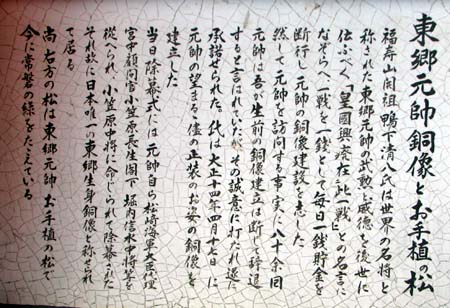 東郷元帥銅像とお手植の松
福寿山開祖鴨下清八氏は世界の名将と
称された東郷元帥の武勲と威徳を後世に
伝ふべく「皇國興廃在此一戦」との名言に
なぞらへ一戦を一銭として毎日一銭貯金を
断行し元帥の銅像建設を志した
然して元帥を訪問する事実に八十余回
元帥は吾が生前の銅像建立は断じて辞退
すると言はれていたがその誠意に打たれ遂に
承諾せられた 氏は大正十四年四月十七日に
元帥の望まるゝ儘の正装のお姿の銅像を
建立した
当日除幕式には元帥自ら松崎海軍大臣代理
宮中顧問官小笠原長生閣下 堀内信水中将等を
従へられ小笠原中将に命じられて除幕された
それ故に日本唯一の東郷生身銅像と称られ
て居る
尚右方の松は東郷元帥お手植の松で
今に常磐の緑をたたえている